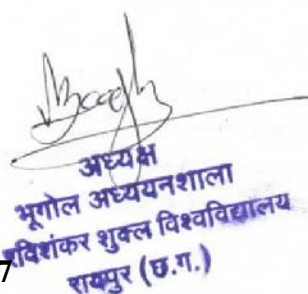 अध्यक्ष
भूगोल अध्ययनशाला
रविशंकर शुक्ल विश्वविद्यालय
7
रायपुर (छ.ग.)